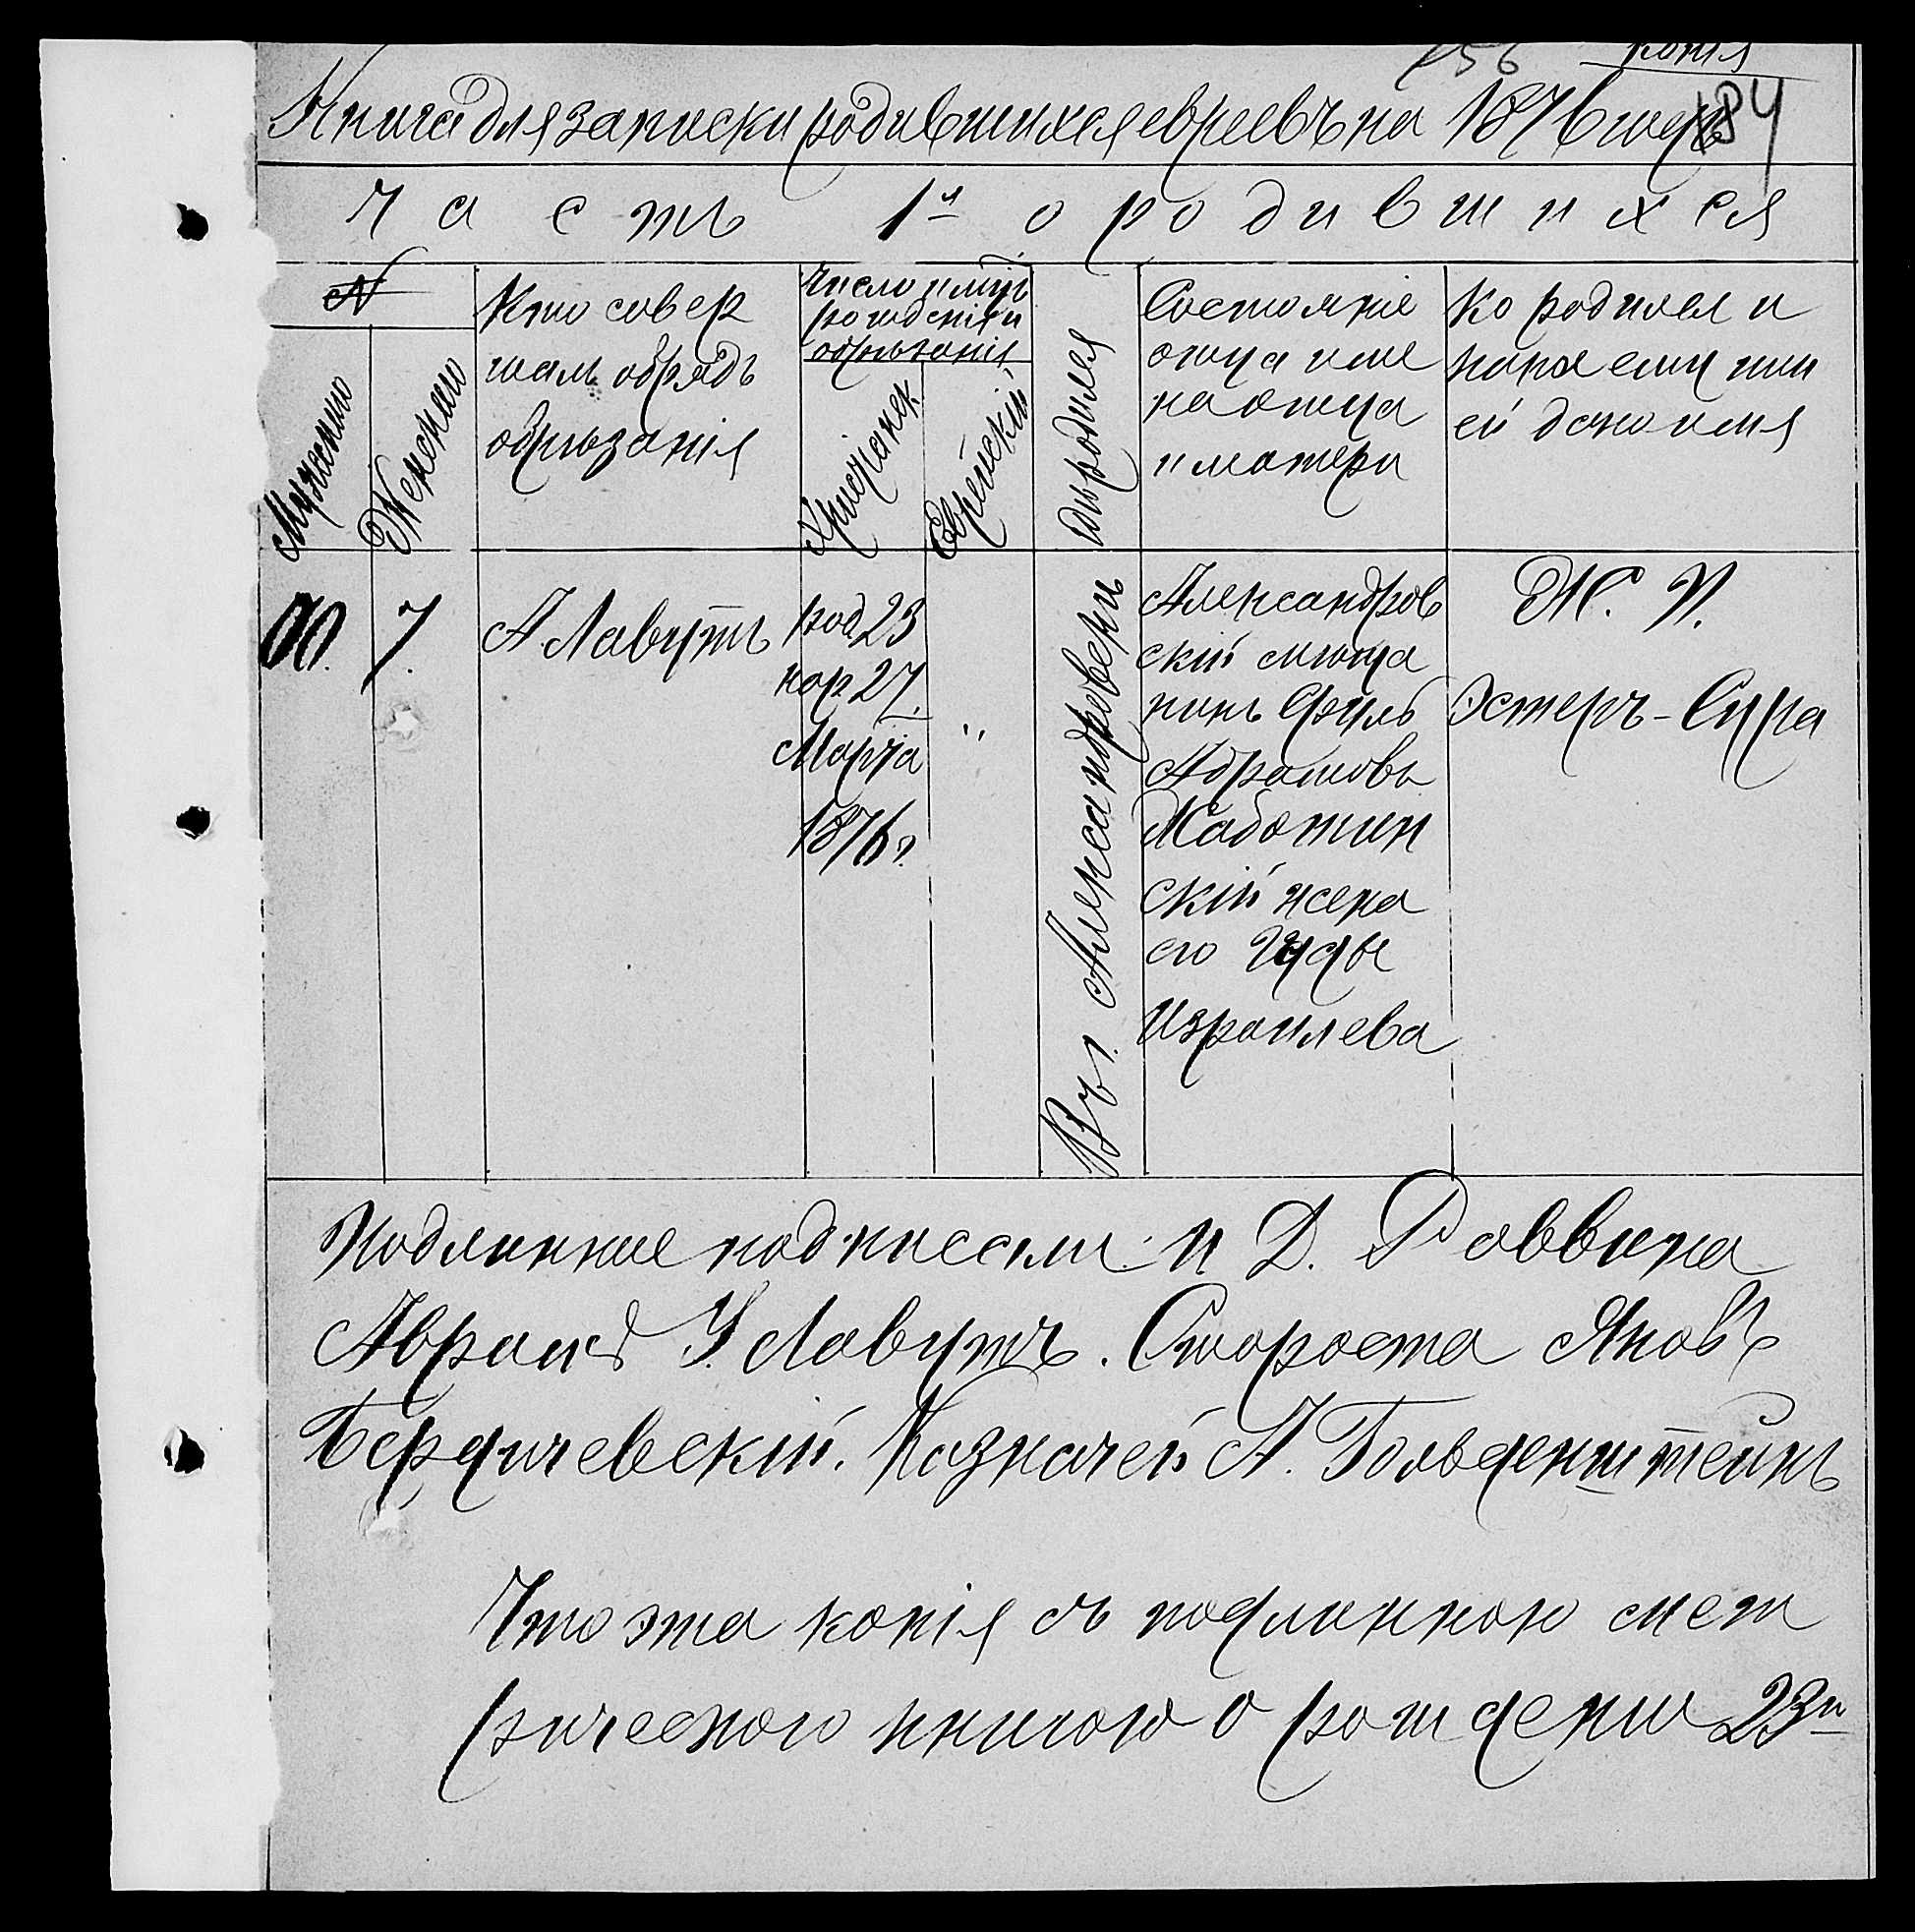 156 Копія
Книга для записки родившихся евреевъ на 1876 годъ 184
Часть 1я о родившихся
№
Мужеского
Женского
Кто совер
шалъ обрядъ
обрѣзанія
Число и мѣсяцъ
рожденія и
обрѣзанія
Христіанск
Еврейскій
Гдѣ родился
Состояніе
отца име
на отца
и матери
Кто родился и
какое ему или
ей дано имя
7.
А Лавутъ
род 23
нар 27.
Марта
1876 г.
"
Въ г. Александровскѣ
Александров
скій мѣща
нинъ
Абрамовъ
Жаботин
скій жена
его
Израилева
Ж. П.
Эстеръ-Сура
Подлинные подписали: И. Д. Раввина
Авраамъ У. Лавутъ. Староста Яковъ
Бердичевскій. Казначей А. Гольденштейнъ
Что эта копія съ подлинною мет
рическою книгою о рожденіи 23и